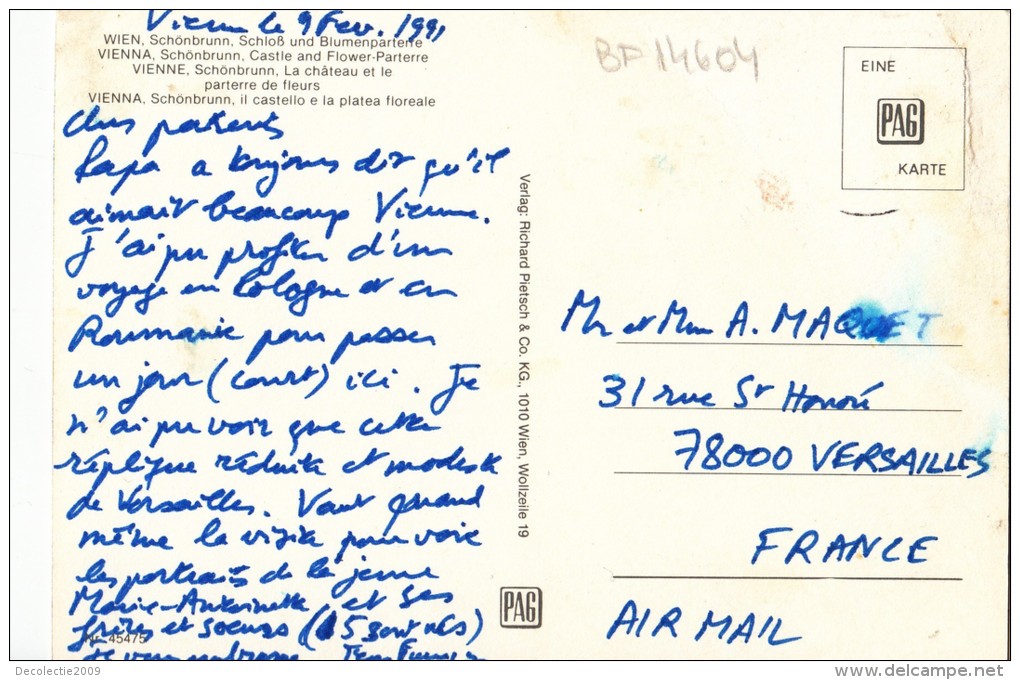 Vienne le 9 Fev. 1991
WIEN, Schönbrunn, Schloß und Blumenparterre
VIENNA, Schönbrunn, Castle and Flower-Parterre
VIENNE, Schönbrunn, La château et le
parterre de fleurs
VIENNA, Schönbrunn, il castello e la platea floreale
Chers parents
Papa a toujours dit qu'il
aimait beaucoup Vienne.
J'ai pu profiter d'un
voyage en Pologne et en
Roumanie pour passer
un jour (court) ici. Je
n'ai pu voir que cette
réplique réduite et modeste
de Versailles. Vaut quand
même la visite pour voir
les portraits de la jeune
Marie-Antoinette et ses
frères et soeurs (15 sont nés)
Nr. 45475
Je vous embrasse
Verlag: Richard Pietsch & Co. KG., 1010 Wien, Wollzeile 19
PAG
BF14604
EINE
PAG
KARTE
Mr et Mme A. MAQUET
31 rue St Honoré
78000 VERSAILLES
FRANCE
AIR MAIL
Decolectie2009
www.delcampe.net